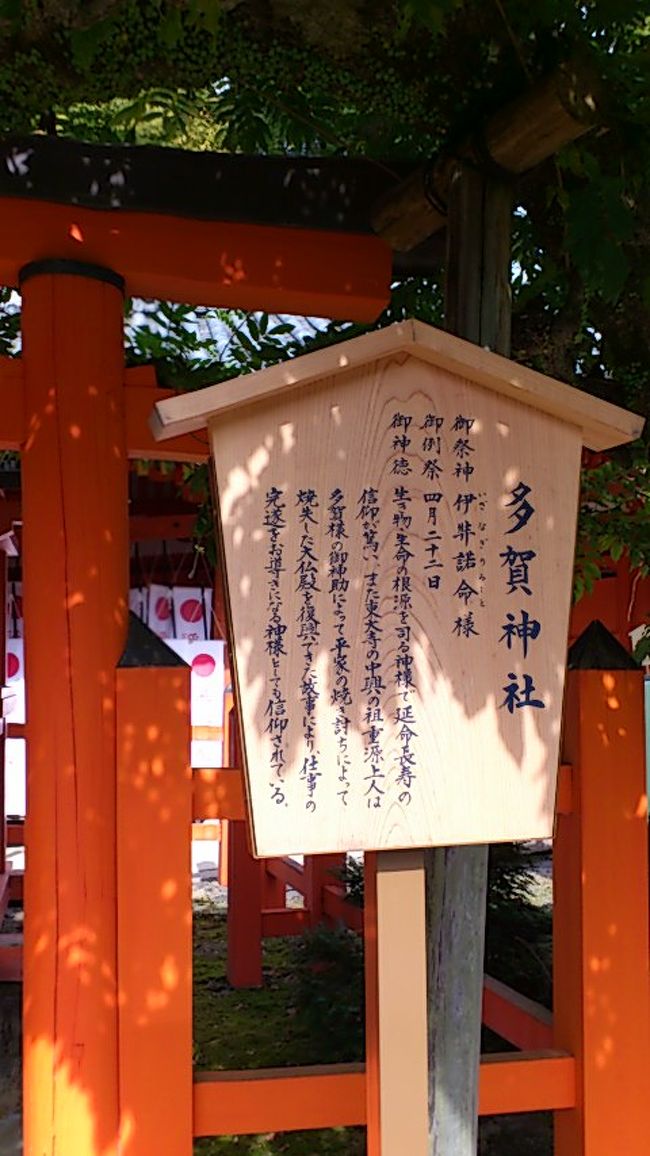 多賀神社
御祭神 伊弉諾命様
いざなぎのみこと
御例祭 四月二十二日
御神徳 生き物生命の根源を司る神様で延命長寿の
信仰が篤い、また東大寺の中興の祖重源上人は
多賀様の御神助によって平家の焼き討ちによって
焼失した大仏殿を復興できた故事により、仕事の
完遂をお導きになる神様としても信仰されている。